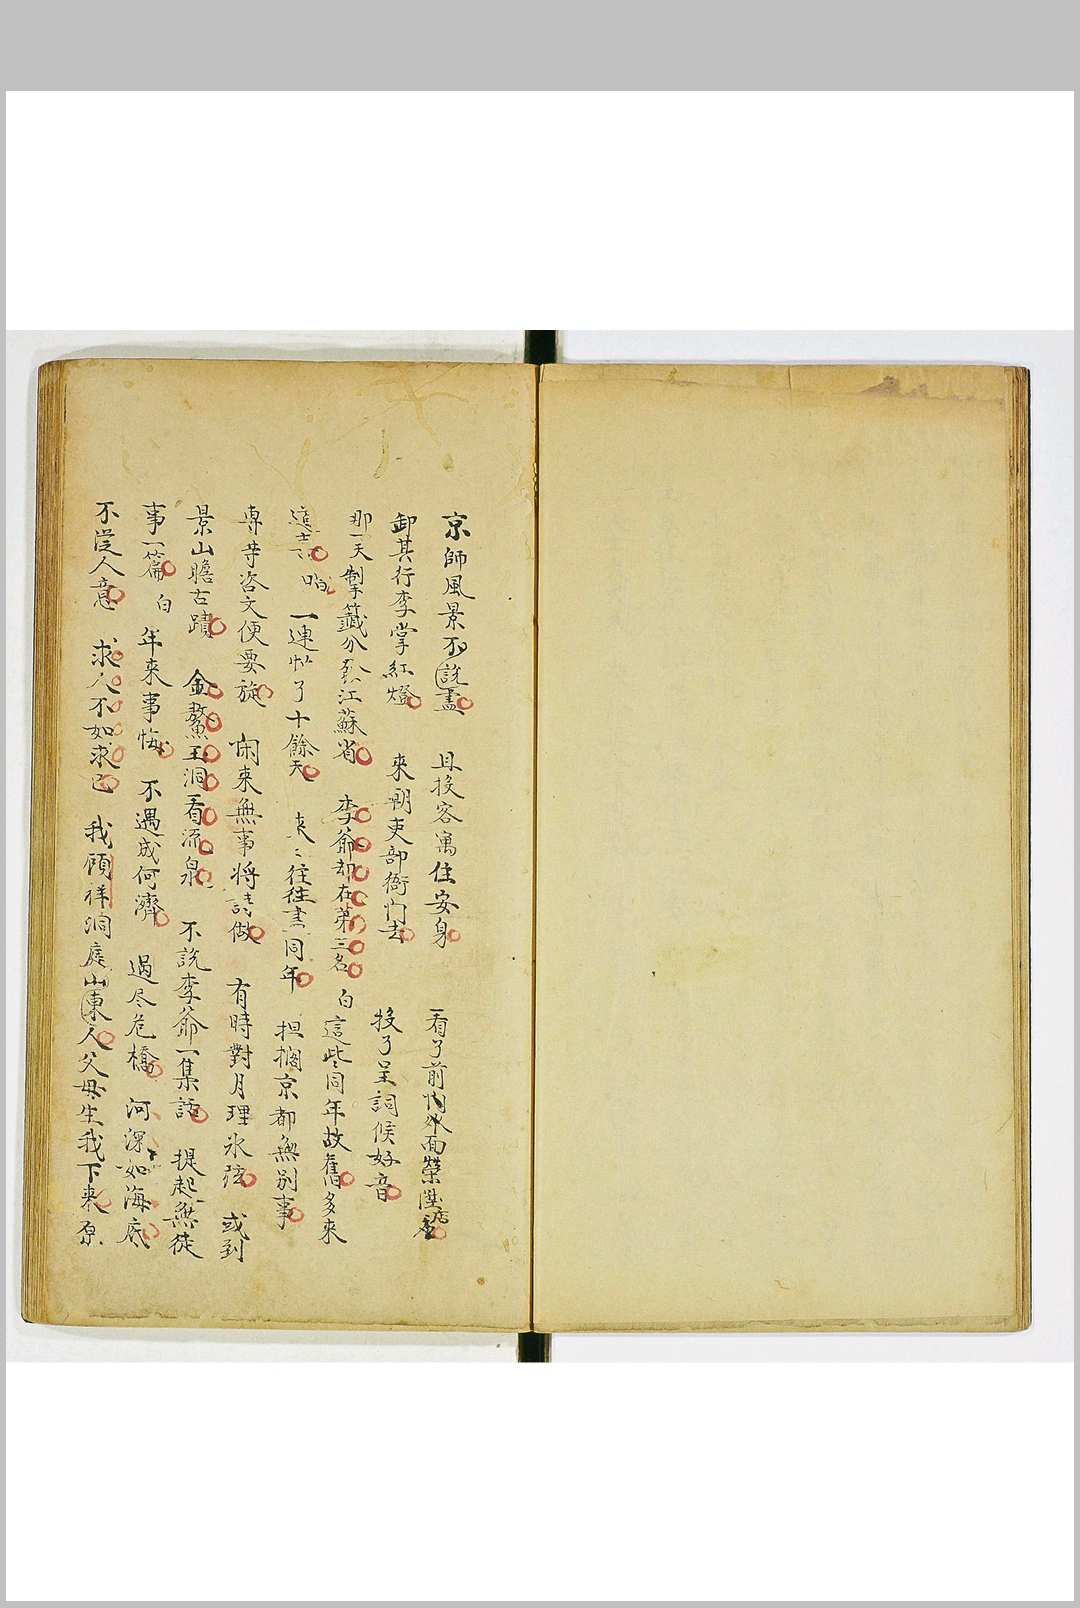 京師風景不說盡　且投客寓住安身　看了前門外面榮陞店
卸其行李掌紅燈　來朝吏部衙門去　投了呈詞候好音
那一天掣籤分發江蘇省　李爺却在第三名　白　這些同年故舊多來
這　一連忙了十餘天　來〻往往盡同年　担擱京都無別事
專等咨文便要旋　閑來無事將詩做　有時對月理氷弦　或到
景山瞻古蹟　金鰲玉洞看流泉　不說李爺一集話　提起無徒
事一篇　白　年來事悔　不遇成何濟　過尽危橋　河深如海底
不從人意　求人不如求己　我顧祥洞庭山東人父母生我下來原